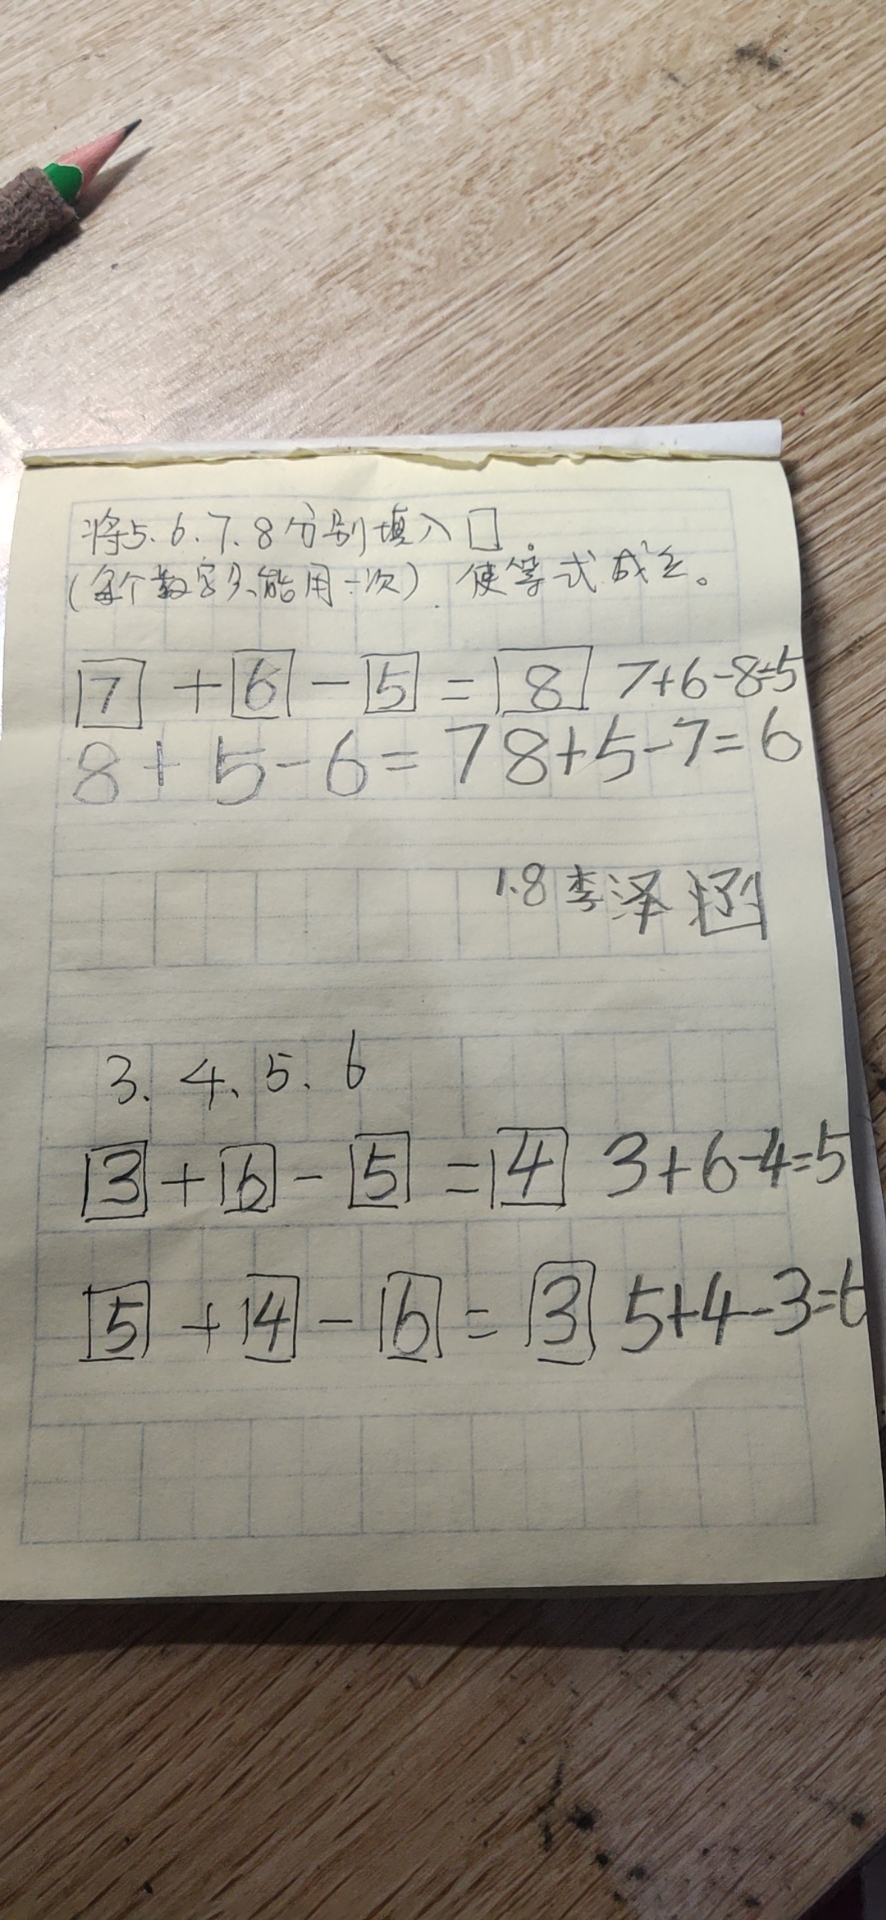 将5.6.7.8分别填入□
(每个数字只能用一次).使等式成立。
7+6-5=8 7+6-8=5
8+5-6=7 8+5-7=6
1.8 李泽涵
3、4、5、6
3+6-5=4 3+6-4=5
5+4-6=3 5+4-3=6